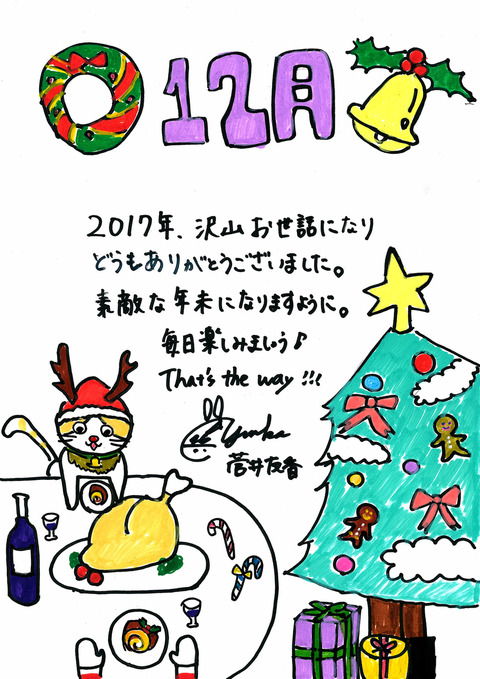 12月
2017年、沢山お世話になり
どうもありがとうございました。
素敵な年末になりますように。
毎日楽しみましょう♪
That's the way!!!
Yuuka
菅井友香